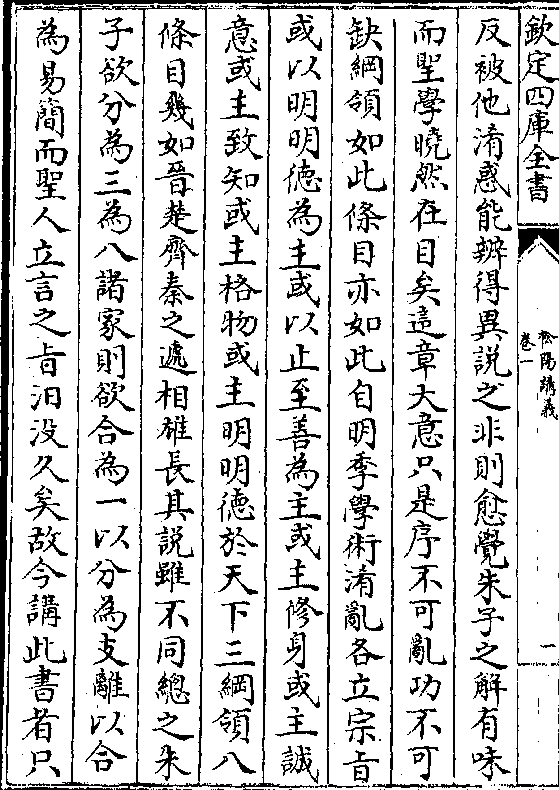 欽定四庫全書
松陽講義
卷一
一
反被他淆惑能辨得異説之非則愈覺朱子之解有味
而聖學曉然在目矣這章大意只是序不可亂功不可
缺綱領如此條目亦如此自明季學術淆亂各立宗旨
或以明明德為主或以止至善為主或主修身或主誠
意或主致知或主格物或主明明德於天下三綱領八
條目幾如晉楚齊秦之遞相雄長其説雖不同總之朱
子欲分為三為八諸家則欲合為一以分為支離以合
為易簡而聖人立言之旨汨没久矣故今講此書者只